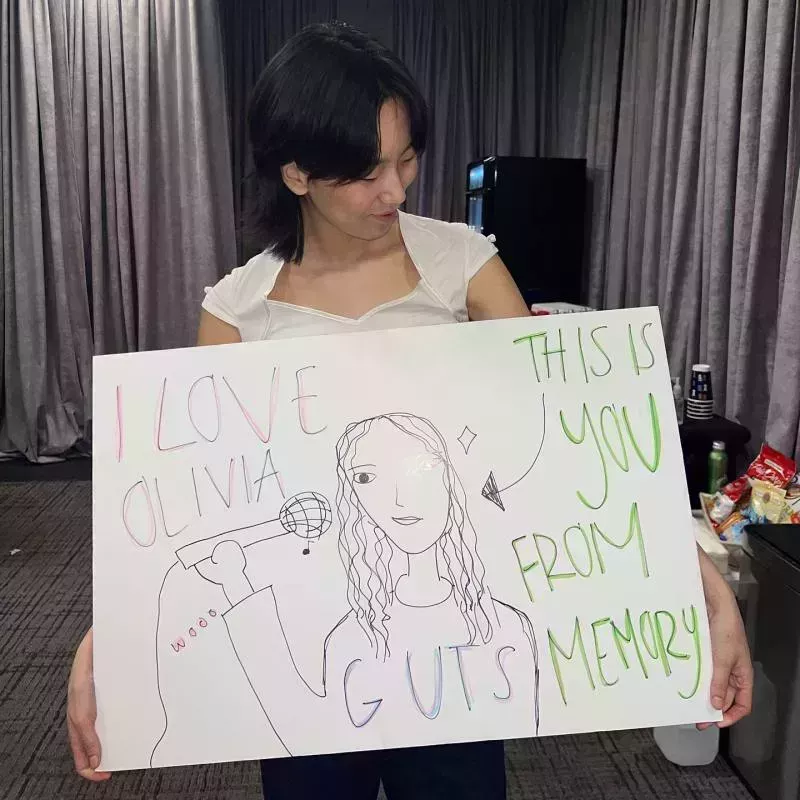 I LOVE
OLIVIA
wooo
GUTS
THIS IS
YOU
FROM
MEMORY